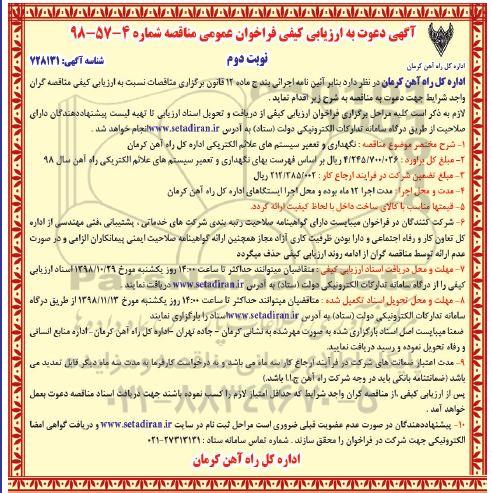 آگهی دعوت به ارزیابی کیفی فراخوان عمومی مناقصه شماره ۴-۵۷-۹۸
نوبت دوم
شناسه آگهی: ۷۲۸۱۳۱
اداره کل راه آهن کرمان
اداره کل راه آهن کرمان در نظر دارد بنابر آئین نامه اجرائی بند ج ماده ۱۲ قانون برگزاری مناقصات نسبت به ارزیابی کیفی مناقصه گران
واجد شرایط جهت دعوت به مناقصه به شرح زیر اقدام نماید.
لازم به ذکر است کلیه مراحل برگزاری فراخوان ارزیابی کیفی از دریافت و تحویل اسناد ارزیابی تا تهیه لیست پیشنهاددهندگان دارای
صلاحیت از طریق درگاه سامانه تدارکات الکترونیکی دولت (ستاد) به آدرس www.setadiran.ir انجام خواهد شد.
۱- شرح مختصر موضوع مناقصه: نگهداری و تعمیر سیستم های علائم الکتریکی اداره کل راه آهن کرمان
۲- مبلغ کل برآورد: ۴/۲۴۵/۷۰۰/۰۲۶ ریال بر اساس فهرست بهای نگهداری و تعمیر سیستم های علائم الکتریکی راه آهن سال ۹۸
۳- مبلغ تضمین شرکت در فرایند ارجاع کار: ۲۱۲/۲۸۵/۰۰۲ ریال
۴- مدت و محل اجرا: مدت اجرا ۱۲ ماه بوده و محل اجرا ایستگاهای اداره کل راه آهن کرمان
۵- قیمتها متناسب با کالای ساخت داخل با لحاظ کیفیت ارائه گردد.
۶- شرکت کنندگان در فراخوان میبایست دارای گواهینامه صلاحیت رتبه بندی شرکت های خدماتی، پشتیبانی، فنی مهندسی از اداره
کل تعاون کار و رفاه اجتماعی و دارا بودن ظرفیت کاری آزاد مجاز همچنین ارائه گواهینامه صلاحیت ایمنی پیمانکاران الزامی و در صورت
عدم ارائه توسط مناقصه گران از ادامه روند ارزیابی کیفی حذف میگردد
۷- مهلت و محل دریافت اسناد ارزیابی کیفی: متقاضیان میتوانند حداکثر تا ساعت ۱۴:۰۰ روز یکشنبه مورخ ۱۳۹۸/۱۰/۲۹ اسناد ارزیابی
کیفی را از درگاه سامانه تدارکات الکترونیکی دولت (ستاد) به آدرس www.setadiran.ir دریافت نمایند.
۸- مهلت و محل تحویل اسناد تکمیل شده: متقاضیان میتوانند حداکثر تا ساعت ۱۴:۰۰ روز یکشنبه مورخ ۱۳۹۸/۱۱/۱۳ از طریق درگاه
سامانه تدارکات الکترونیکی دولت (ستاد) به آدرس www.setadiran.ir اسناد را بارگزاری نمایند
ضمنا میبایست اصل اسناد بارگزاری شده به صورت مهرشده به نشانی کرمان - جاده تهران - اداره کل راه آهن کرمان - اداره منابع انسانی
و رفاه تحویل نموده و رسید دریافت نمایید.
۹- مدت اعتبار ضمانت های شرکت در فرآیند ارجاع کار سه ماه می باشد و به درخواست کارفرما به مدت سه ماه دیگر قابل تمدید می
باشد (ضمانتنامه بانکی باید در وجه شرکت راه آهن ج.ا.ا باشد)
پس از ارزیابی کیفی، از مناقصه گران واجد شرایط که حداقل امتیاز لازم را کسب نموده باشند جهت دریافت اسناد مناقصه دعوت بعمل
خواهد آمد.
۱۰- پیشنهاددهندگان در صورت عدم عضویت قبلی ضروری است مراحل ثبت نام در سایت www.setadiran.ir و دریافت گواهی امضا
الکترونیکی جهت شرکت در فراخوان را محقق سازند. شماره تماس سامانه ستاد: ۲۷۳۱۳۱۳۱-۰۲۱
اداره کل راه آهن کرمان